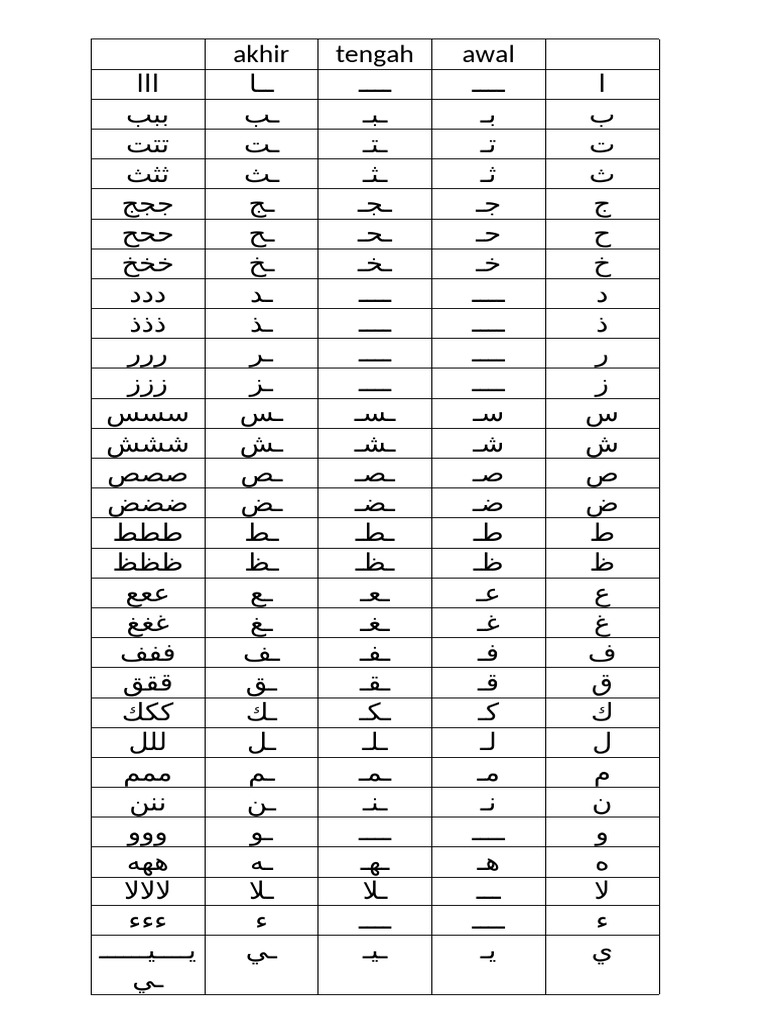 akhir tengah awal
ااا ـا ـــ ـــ ا
ببب ـب ـبـ بـ ب
تتت ـت ـتـ تـ ت
ثثث ـث ـثـ ثـ ث
ججج ـج ـجـ جـ ج
ححح ـح ـحـ حـ ح
خخخ ـخ ـخـ خـ خ
ددد ـد ـــ ـــ د
ذذذ ـذ ـــ ـــ ذ
ررر ـر ـــ ـــ ر
ززز ـز ـــ ـــ ز
سسس ـس ـسـ سـ س
ششش ـش ـشـ شـ ش
صصص ـص ـصـ صـ ص
ضضض ـض ـضـ ضـ ض
ططط ـط ـطـ طـ ط
ظظظ ـظ ـظـ ظـ ظ
ععع ـع ـعـ عـ ع
غغغ ـغ ـغـ غـ غ
ففف ـف ـفـ فـ ف
ققق ـق ـقـ قـ ق
ككك ـك ـكـ كـ ك
للل ـل ـلـ لـ ل
ممم ـم ـمـ مـ م
ننن ـن ـنـ نـ ن
ووو ـو ـــ ـــ و
ههه ـه ـهـ هـ ه
لالالا ـلا ـلا ـــ لا
ءءء ء ـــ ـــ ء
يــــيــــــ ـي ـيـ يـ ي
ـي